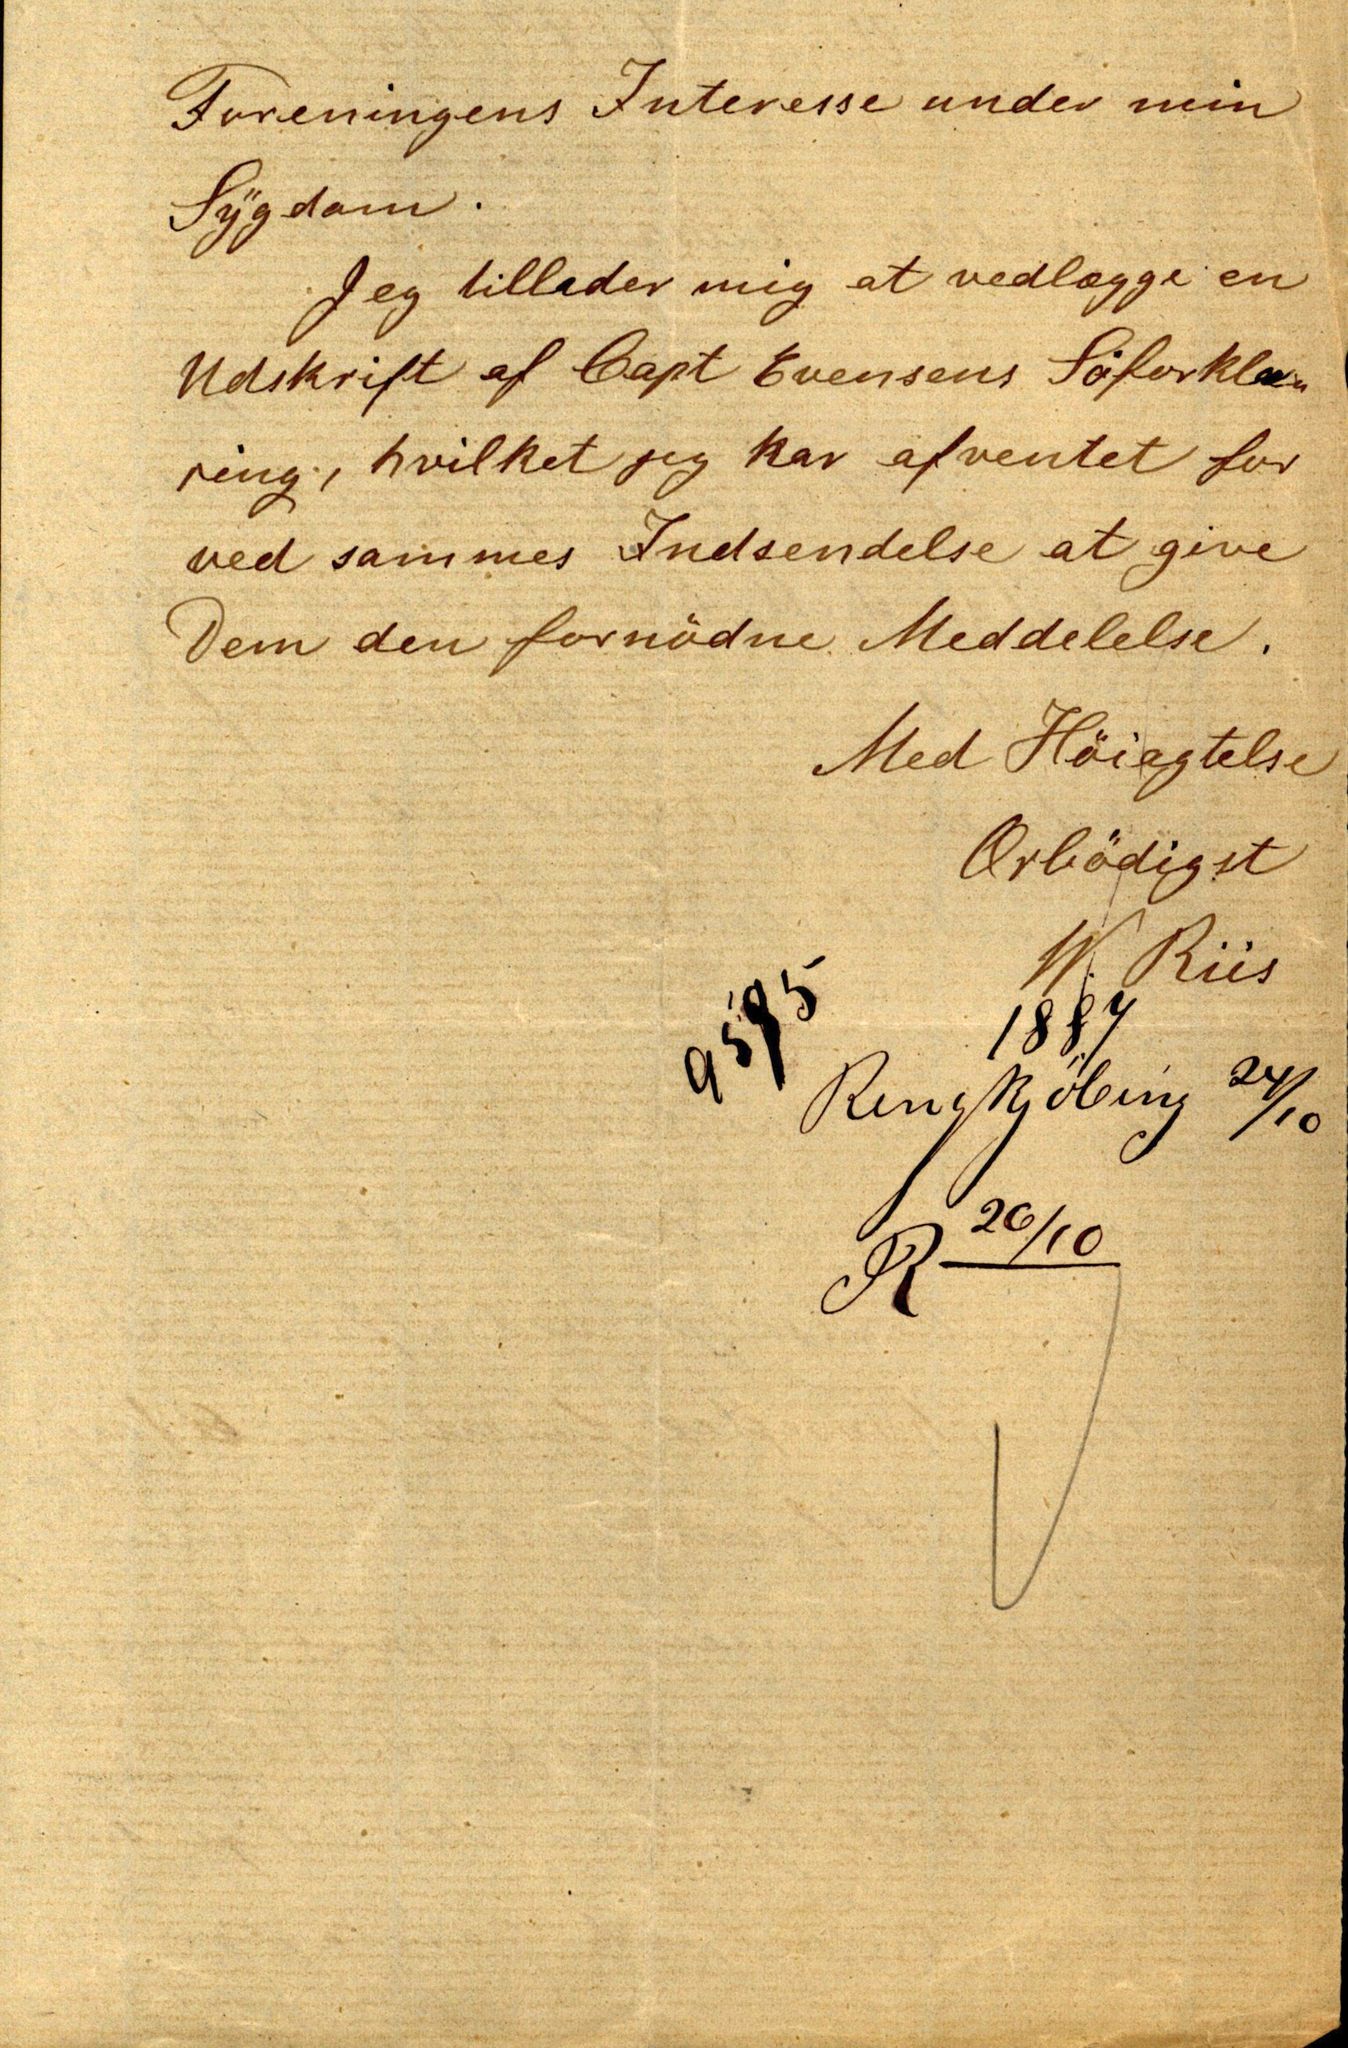 Foreningens Interesse under min
Sÿgdom.
Jeg tillader mig at vedlægge en
Udskrift af Capt Evensens Söforkla-
ring, hvilket jeg har afventet for
ved sammes Indsendelse at give
Dem den fornödne Meddelelse.
Med Höiagtelse
Ærbödigst
W. Riis
9595
1887
Ringkjöbing 24/10
R 26/10